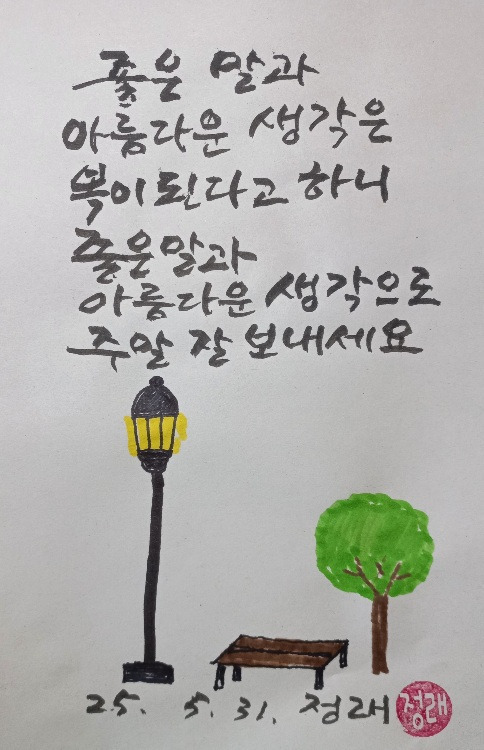 좋은 말과
아름다운 생각은
복이 된다고 하니
좋은 말과
아름다운 생각으로
주말 잘 보내세요
25. 5. 31. 정래
정래